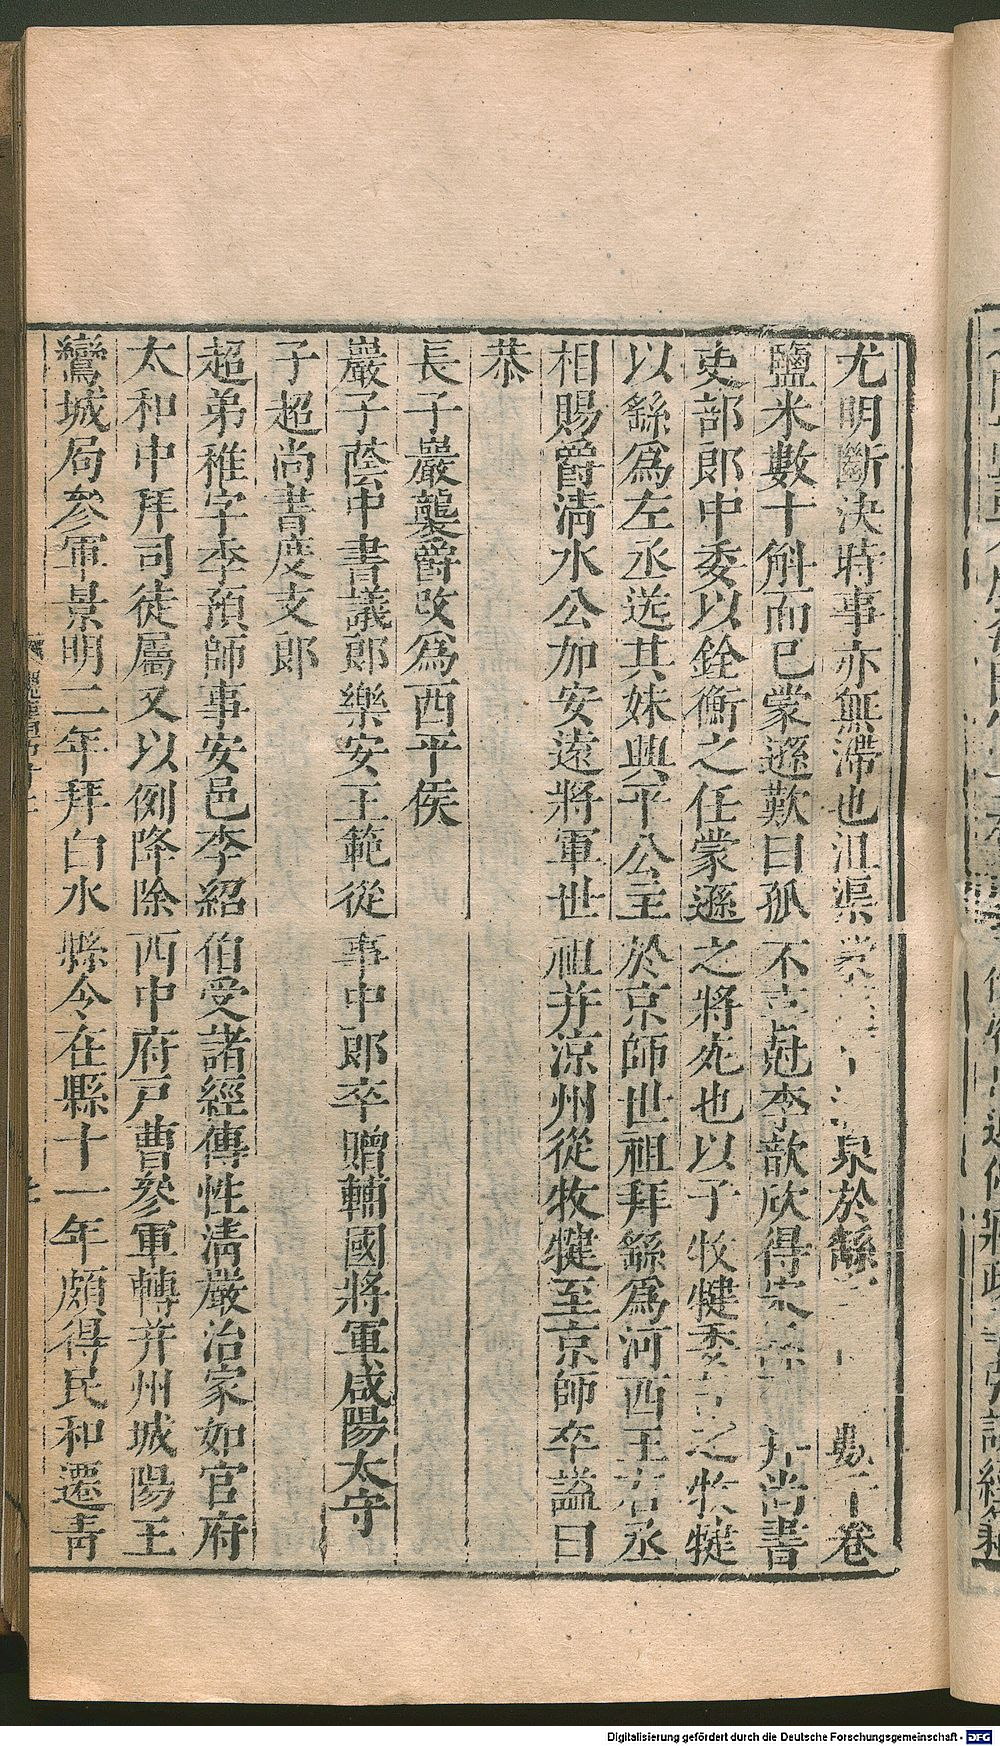 尤明斷決時事亦無滯也沮渠蒙泉於繇數千卷
鹽米數十斛而已蒙遜歎曰孤不喜尅李歆欣得宋繇耳拜尚書
吏部郎中委以銓衡之任蒙遜之將死也以子牧犍委之牧犍
以繇爲左丞送其妹興平公主於京師世祖拜繇爲河西王右丞
相賜爵清水公加安遠將軍世祖并涼州從牧犍至京師卒謚曰
恭
長子巖襲爵改爲西平侯
巖子蔭中書議郎樂安王範從事中郎卒贈輔國將軍咸陽太守
子超尚書度支郎
超弟稚字季預師事安邑李紹伯受諸經傳性清嚴治家如官府
太和中拜司徒屬又以例降除西中府戸曹參軍轉并州城陽王
鸞城局參軍景明二年拜白水縣令在縣十一年頗得民和遷青
Digitalisierung gefördert durch die Deutsche Forschungsgemeinschaft - DFG